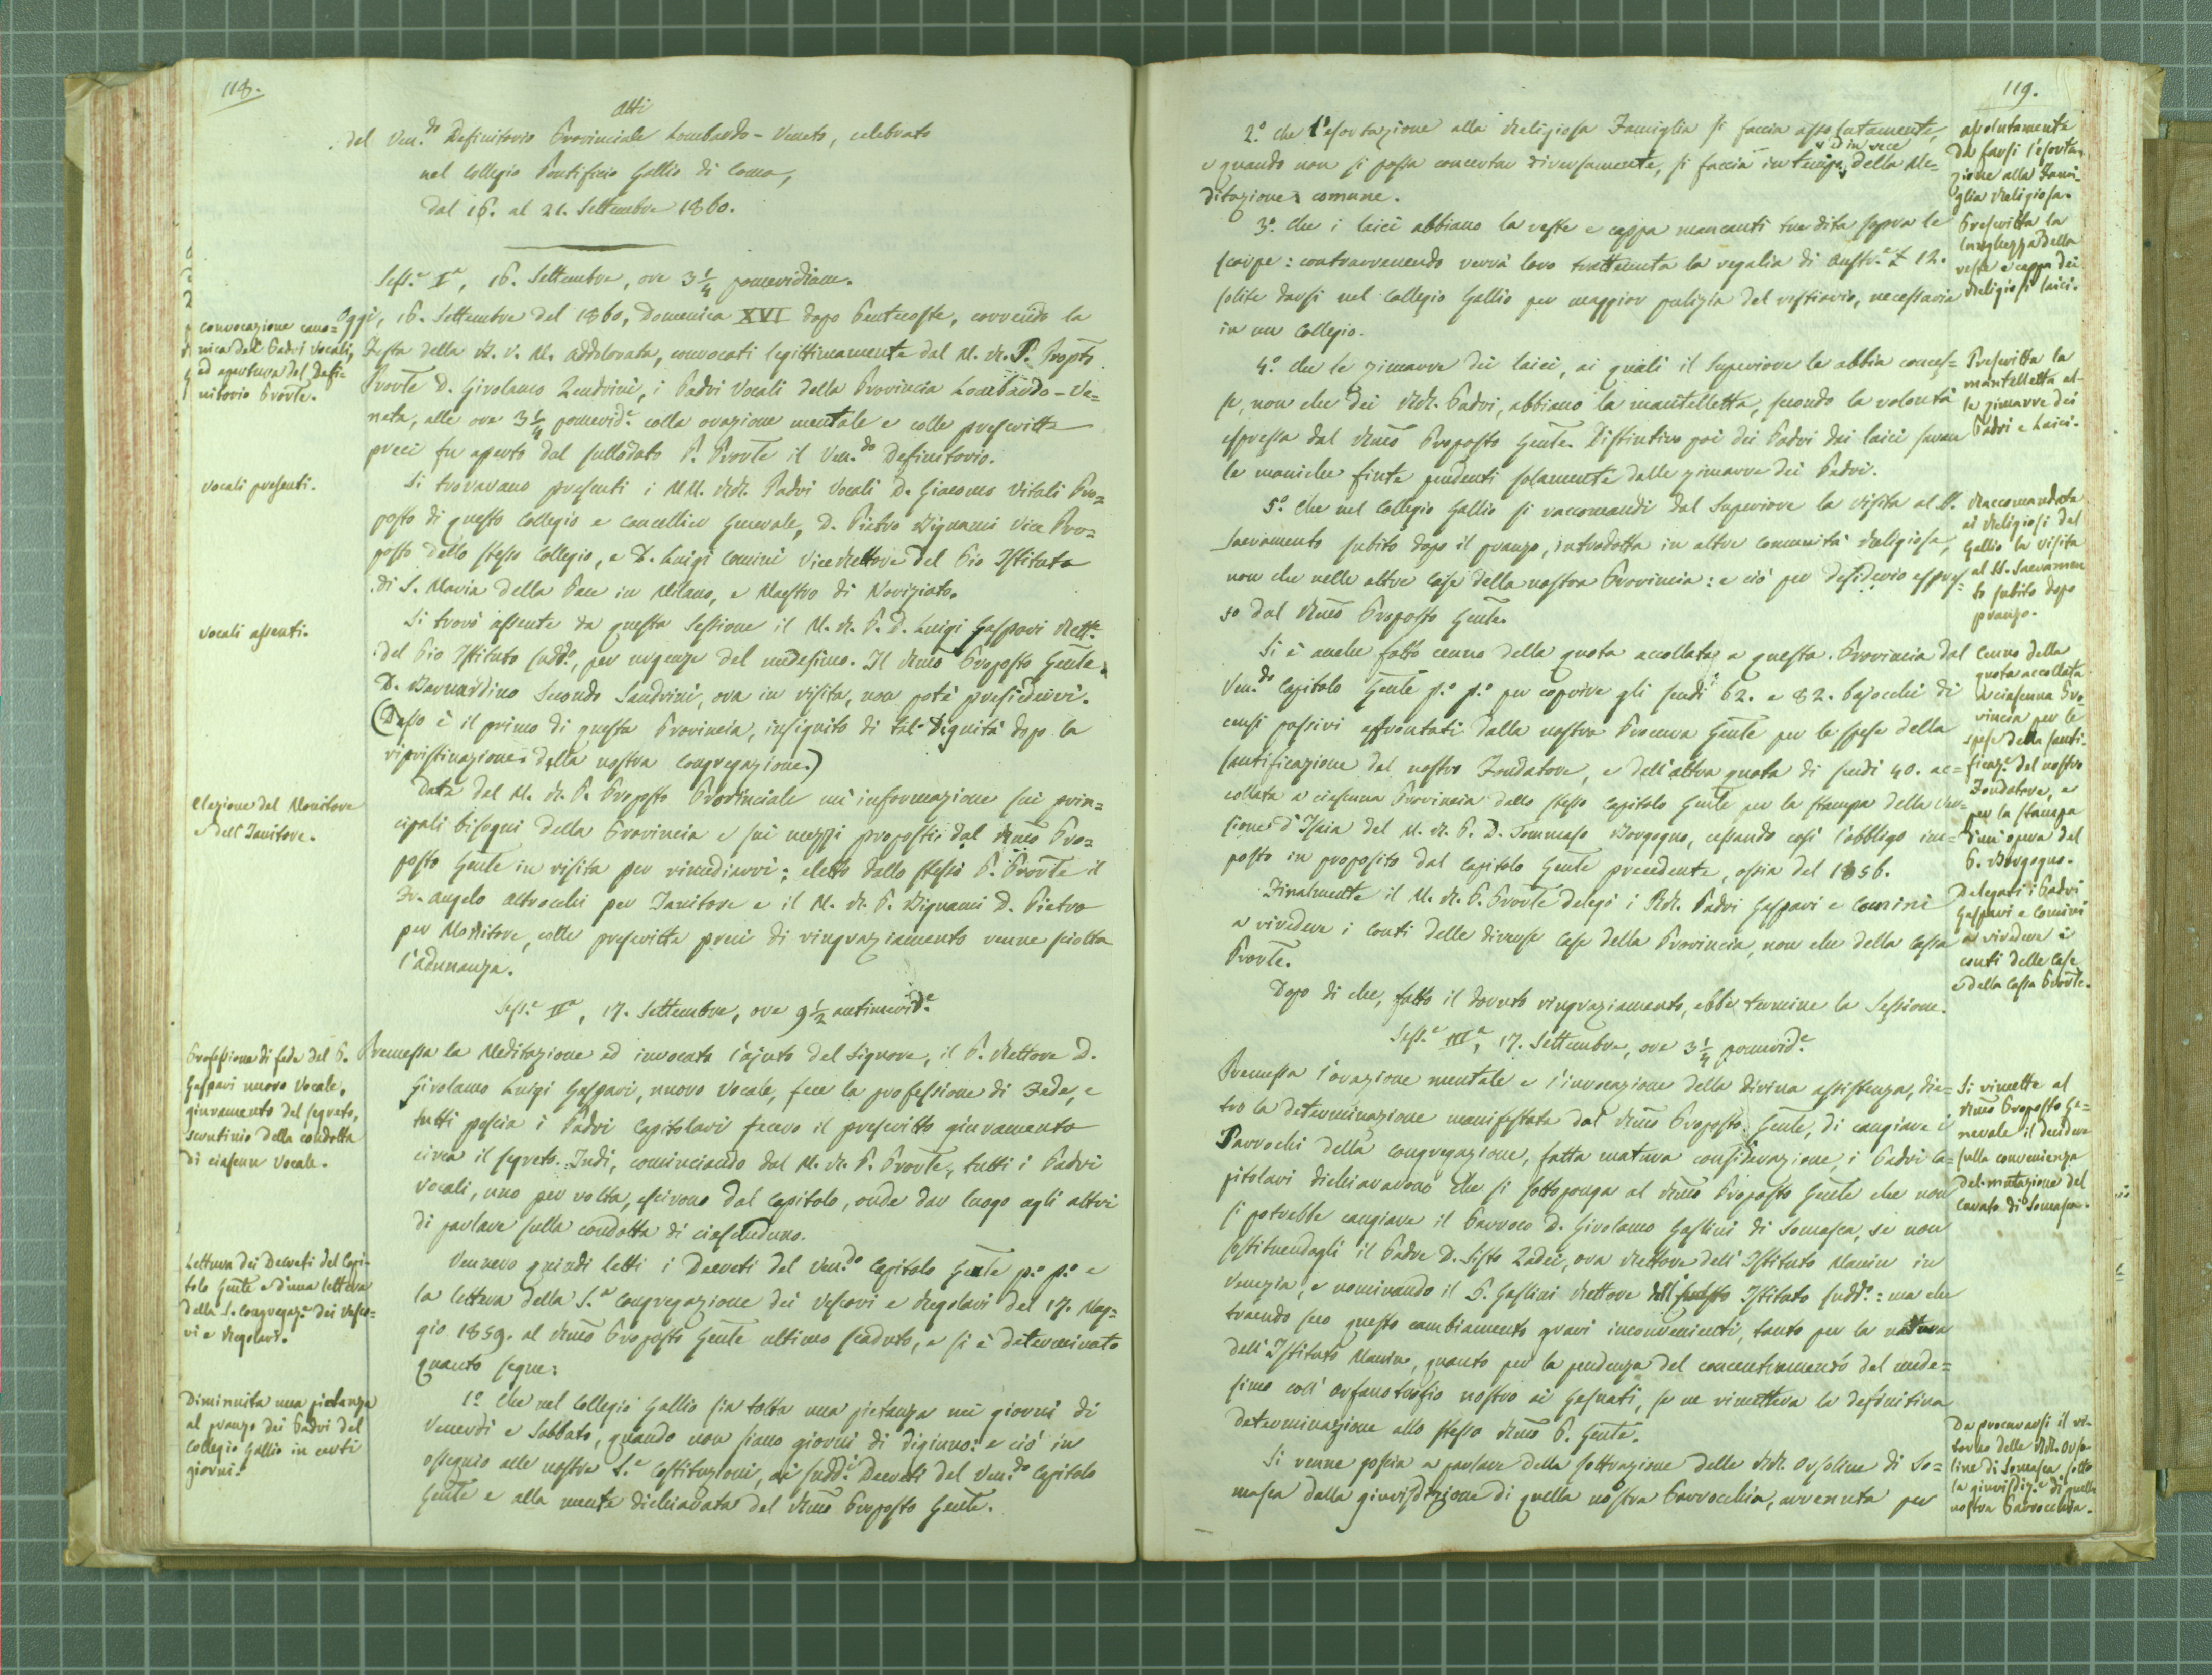 118.
Atti
del Ven.do Definitorio Provinciale Lombardo-Veneto, celebrato
nel Collegio Pontificio Gallio di Como,
dal 16. al 21. Settembre 1860.
Sess.e Iª, 16. Settembre, ore 3 1/4 pomeridiane.
convocazione cano=
nica dei Padri Vocali,
ed apertura del Defi=
nitorio Provle.
Oggi, 16. Settembre del 1860, Domenica XVI dopo Pentecoste, correndo la
Festa della B. V. M. Addolorata, convocati legittimamente dal M. R. P. Propto
Provle D. Girolamo Zendrini, i Padri Vocali della Provincia Lombardo-Ve=
neta, alle ore 3 1/4 pomerid.e colla orazione mentale e colle prescritte
preci fu aperto dal sullodato P. Provle il Ven.do Definitorio.
Vocali presenti.
Si trovavano presenti i MM. RR. Padri Vocali D. Giacomo Vitali Pro=
posto di questo Collegio e Cancelliere Generale, D. Pietro Bignami Vice Pro=
posto dello stesso Collegio, e D. Luigi Comini Vice Rettore del Pio Istituto
di S. Maria della Pace in Milano, e Maestro di Noviziato.
Vocali assenti.
Si trovò assente da questa Sessione il M. R. P. D. Luigi Gaspari Rett.e
del Pio Istituto sudd.o, per urgenze del medesimo. Il Rmo Proposto Gente
D. Bernardino Secondo Sandrini, ora in visita, non poté presiedervi.
(Desso è il primo di questa Provincia, insignito di tal Dignità dopo la
ripristinazione della nostra Congregazione.)
Elezione del Monitore
e dell'Janitore.
Data dal M. R. P. Proposto Provinciale un'informazione sui prin=
cipali bisogni della Provincia e sui mezzi proposti dal Rmo Pro=
posto Gente in visita per rimediarvi; eletto dallo stesso P. Provle il
Fr. Angelo Altrocchi per Janitore e il M. R. P. Bignami D. Pietro
per Monitore, colle prescritte preci di ringraziamento venne sciolta
l'adunanza.
Sess.e IIª, 17. Settembre, ore 9 1/2 antimerid.e
Professione di fede del P.
Gaspari nuovo Vocale,
giuramento del segreto,
scrutinio della condotta
di ciascun Vocale.
Premessa la Meditazione ed invocato l'ajuto del Signore, il P. Rettore D.
Girolamo Luigi Gaspari, nuovo Vocale, fece la professione di Fede, e
tutti poscia i Padri Capitolari fecero il prescritto giuramento
circa il segreto. Indi, cominciando dal M. R. P. Provle, tutti i Padri
Vocali, uno per volta, escirono dal Capitolo, onde dar luogo agli altri
di parlare sulla condotta di ciascheduno.
Lettura dei Decreti del Capi-
tolo Gente e d'una lettera
della S. Congregaz.e dei Vesco-
vi e Regolari.
Vennero quindi letti i Decreti del Ven.do Capitolo Gente p.o p.o e
la lettera della S.a Congregazione dei Vescovi e Regolari del 17. Mag-
gio 1859. al Rmo Proposto Gente ultimo scaduto, e si è determinato
quanto segue:
Diminuita una pietanza
al pranzo dei Padri del
Collegio Gallio in certi
giorni.
1.o Che nel Collegio Gallio sia tolta una pietanza nei giorni di
Venerdì e Sabbato, quando non siano giorni di digiuno: e ciò in
ossequio alle nostre S.e Costituzioni, ai sudd.i Decreti del Ven.do Capitolo
Gente e alla mente dichiarata del Rmo Proposto Gente.
119.
2.o che l'esortazione alla Religiosa Famiglia si faccia assolutamente,
e quando non si possa concertar diversamente, si faccia in tempo, od in vece della Me=
ditazione comune.
assolutamente
da farsi l'esorta-
zione alla Fami-
glia Religiosa.
3.o che i laici abbiano la veste e cappa mancanti tre dita sopra le
scarpe: contravvenendo verrà loro trattenuta la regalia di Austr.e £ 12.
solite darsi nel Collegio Gallio per maggior pulizia del vestiario, necessaria
in un Collegio.
Prescritta la
lunghezza della
veste e cappa dei
Religiosi laici.
4.o che le zimarre dei laici, ai quali il Superiore le abbia conces=
se, non che dei RR. Padri, abbiano la mantelletta, secondo la volontà
espressa dal Rmo Proposto Gente. Distintivo poi dei Padri dai laici saran
le maniche finte pendenti solamente dalle zimarre dei Padri.
Prescritta la
mantelletta al-
le zimarre dei
Padri e Laici.
5.o Che nel Collegio Gallio si raccomandi dal Superiore la visita al SS.
Sacramento subito dopo il pranzo, introdotta in altre comunità Religiose,
non che nelle altre Case della nostra Provincia: e ciò per desiderio espres=
so dal Rmo Proposto Gente.
Raccomandata
ai Religiosi del
Gallio la visita
al SS. Sacramen
to subito dopo
pranzo.
Si è anche fatto cenno della quota accollata a questa Provincia dal
Ven.do Capitolo Gente p.o p.o per coprire gli scudi 62. e 82. bajocchi di
censi passivi affrontati dalla nostra Procura Gente per le spese della
santificazione del nostro Fondatore, e dell'altra quota di scudi 40. ac=
collata a ciascuna Provincia dallo stesso Capitolo Gente per la stampa della Ver=
sione d'Isaia del M. R. P. D. Tommaso Borgogno, cessando così l'obbligo im=
posto in proposito dal Capitolo Gente precedente, ossia del 1856.
Cenno della
quota accollata
a ciascuna Pro
vincia per le
spese della santi-
ficaz.e del nostro
Fondatore, e
per la stampa
d'un'opera del
P. Borgogno.
Finalmente il M. R. P. Provle delegò i RR. Padri Gaspari e Comini
a rivedere i conti delle diverse Case della Provincia, non che della Cassa
Provle.
Delegati i Padri
Gaspari e Comini
a rivedere i
conti delle Case
e della Cassa Provle.
Dopo di che, fatto il dovuto ringraziamento, ebbe termine la Sessione.
Sess.e IIIª, 17. Settembre, ore 3 1/4 pomerid.e
Premessa l'orazione mentale e l'invocazione della divina assistenza, die=
tro la determinazione manifestata dal Rmo Proposto Gente, di cangiare i
Parrochi della Congregazione, fatta matura considerazione, i Padri Ca=
pitolari dichiararono che si sottoponga al Rmo Proposto Gente che non
si potrebbe cangiare il Parroco D. Girolamo Gaslini di Somasca, se non
sostituendogli il Padre D. Sisto Zadei, ora Rettore dell'Istituto Manin in
Venezia, e nominando il P. Gaslini Rettore dell' Istituto sudd.o: ma che
traendo seco questo cambiamento gravi inconvenienti, tanto per la natura
dell'Istituto Manin, quanto per la pendenza del concentramento del mede=
simo coll'orfanotrofio nostro ai Gesuati, se ne rimetteva la definitiva
determinazione allo stesso Rmo P. Gente.
Si rimette al
Rmo Proposto Ge=
nerale il decidere
sulla convenienza
del mutazione del
Curato di Somasca.
Si venne poscia a parlare della sottrazione delle RR. Orsoline di So=
masca dalla giurisdizione di quella nostra Parrocchia, avvenuta per
Da procurarsi il ri-
torno delle RR. Orso-
line di Somasca sotto
la giurisdiz.e di quella
nostra Parrocchia.